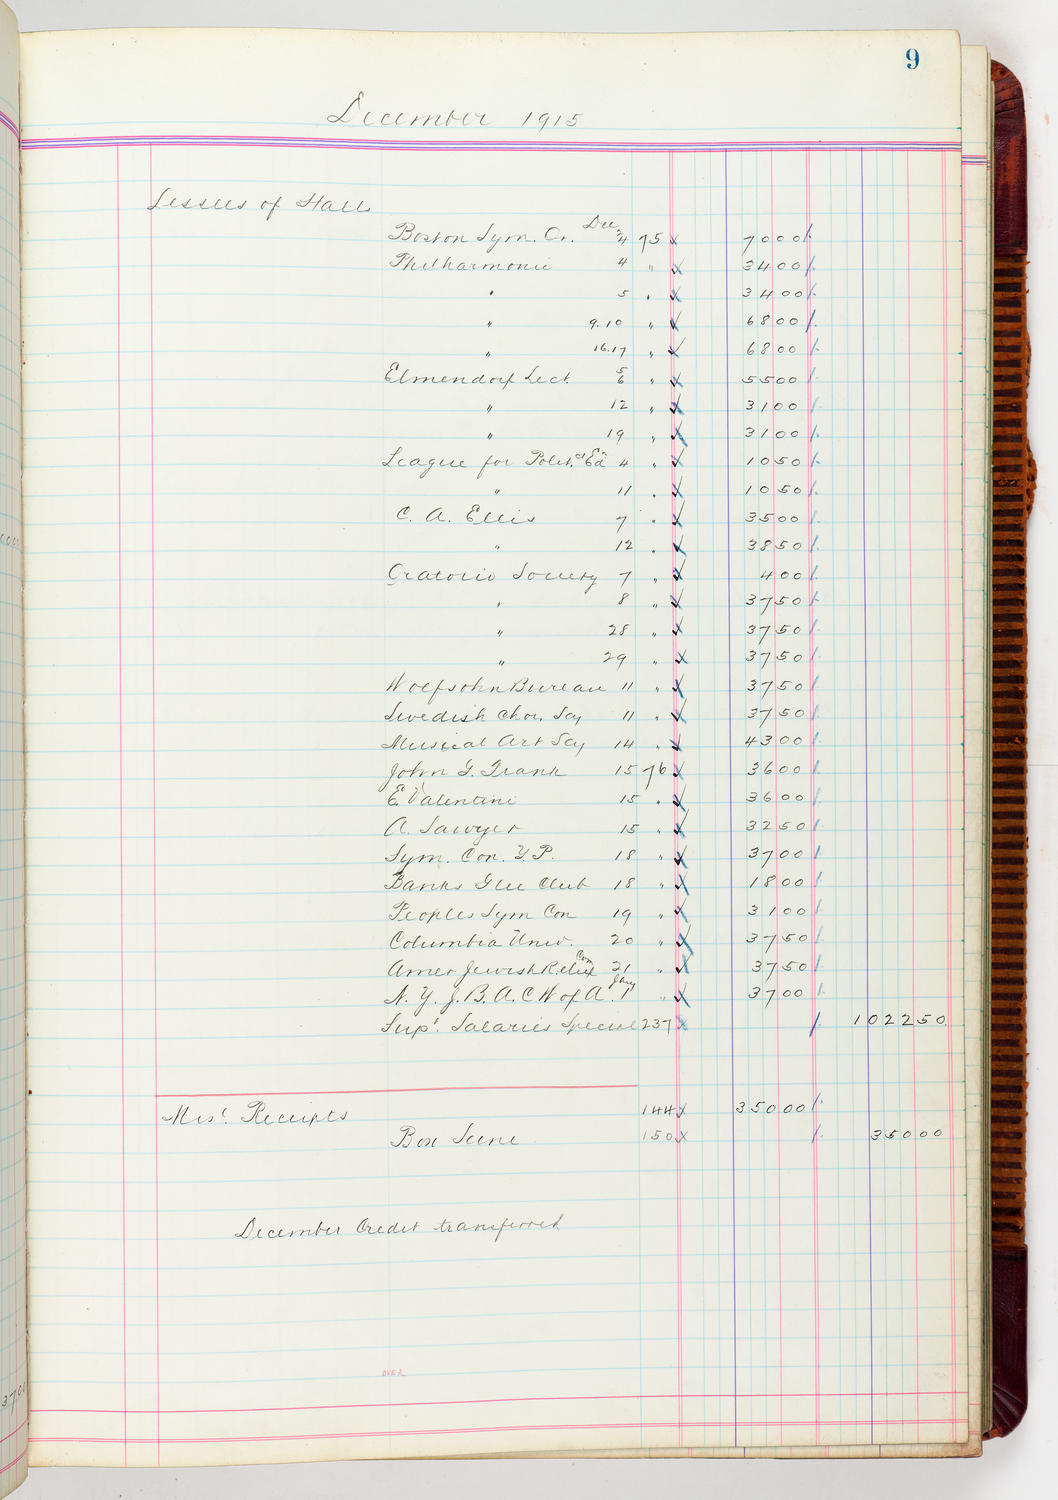 9
December 1915
Lessees of Hall
Boston Sym. Or. Dec 2/4 75 x 7000
Philharmonic 4 " x 3400
" 5 " x 3400
" 9.10 " x 6800
" 16.17 " x 6800
Elmendorf Lect. 5/6 " x 5500
" 12 " x 3100
" 19 " x 3100
League for Polit. Ed 4 " x 1050
" 11 " x 1050
C. A. Ellis 7 " x 3500
" 12 " x 3850
Oratorio Society 7 " x 400
" 8 " x 3750
" 28 " x 3750
" 29 " x 3750
Wolfsohn Bureau 11 " x 3750
Swedish Chor. Socy 11 " x 3750
Musical Art Socy 14 " x 4300
John G. Frank 15 76 x 3600
E. Valentine 15 " x 3600
A. Sawyer 15 " x 3250
Sym. Con. Y.P. 18 " x 3700
Banks Glee Club 18 " x 1800
Peoples Sym Con 19 " x 3100
Columbia Univ. 20 " x 3750
Amer Jewish Relief Com 21 " x 3750
N. Y. J. B. A. C W of A. Jany 1 " x 3700
Supt. Salaries Special 237 x 102250
Mis! Receipts 144 x 35000
Box Scene 150 x 35000
December Credit transferred
OVER
0.00
3700